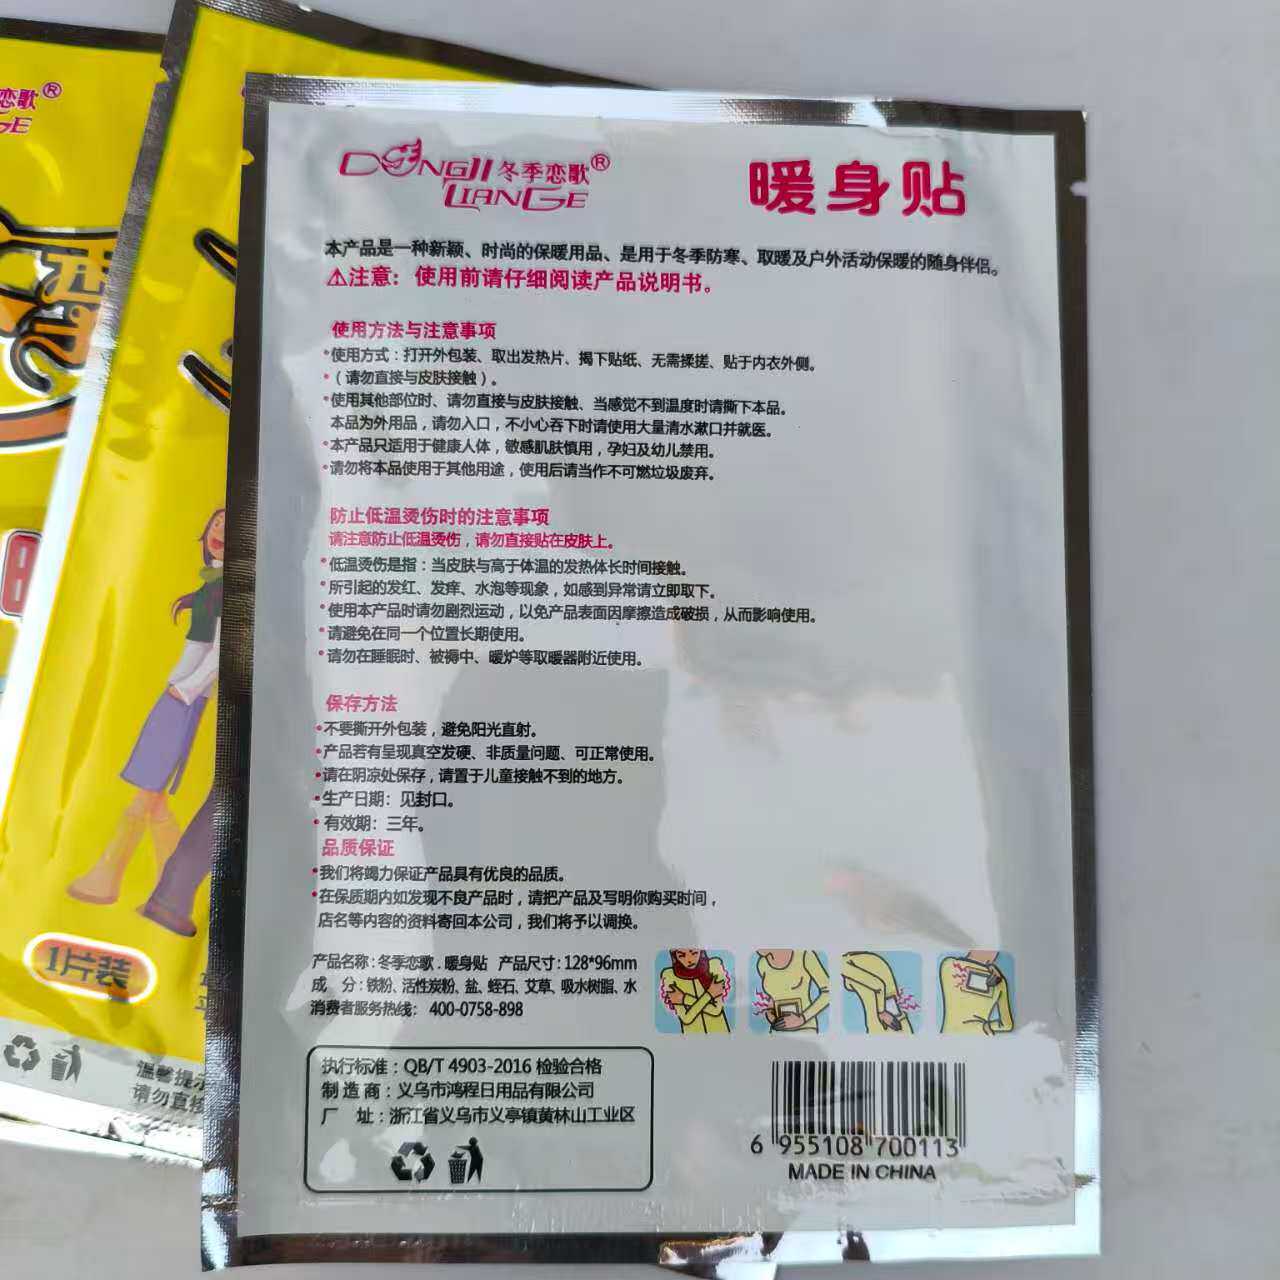 恋歌®
GE
DONGJI 冬季恋歌®
LIANGE
暖身贴
本产品是一种新颖、时尚的保暖用品、是用于冬季防寒、取暖及户外活动保暖的随身伴侣。
⚠注意: 使用前请仔细阅读产品说明书。
使用方法与注意事项
•使用方式：打开外包装、取出发热片、揭下贴纸、无需揉搓、贴于内衣外侧。
•（请勿直接与皮肤接触）。
•使用其他部位时、请勿直接与皮肤接触、当感觉不到温度时请撕下本品。
本品为外用品，请勿入口，不小心吞下时请使用大量清水漱口并就医。
•本产品只适用于健康人体，敏感肌肤慎用，孕妇及幼儿禁用。
•请勿将本品使用于其他用途，使用后请当作不可燃垃圾废弃。
防止低温烫伤时的注意事项
请注意防止低温烫伤，请勿直接贴在皮肤上。
•低温烫伤是指：当皮肤与高于体温的发热体长时间接触。
•所引起的发红、发痒、水泡等现象，如感到异常请立即取下。
•使用本产品时请勿剧烈运动，以免产品表面因摩擦造成破损，从而影响使用。
•请避免在同一个位置长期使用。
•请勿在睡眠时、被褥中、暖炉等取暖器附近使用。
保存方法
•不要撕开外包装，避免阳光直射。
•产品若有呈现真空发硬、非质量问题、可正常使用。
•请在阴凉处保存，请置于儿童接触不到的地方。
•生产日期：见封口。
•有效期：三年。
品质保证
•我们将竭力保证产品具有优良的品质。
•在保质期内如发现不良产品时，请把产品及写明你购买时间，
店名等内容的资料寄回本公司，我们将予以调换。
产品名称：冬季恋歌．暖身贴 产品尺寸：128*96mm
成 分：铁粉、活性炭粉、盐、蛭石、艾草、吸水树脂、水
消费者服务热线： 400-0758-898
执行标准：QB/T 4903-2016 检验合格
制 造 商：义乌市鸿程日用品有限公司
厂 址：浙江省义乌市义亭镇黄林山工业区
6 955108 700113
MADE IN CHINA
1片装
温馨提示
请勿直接